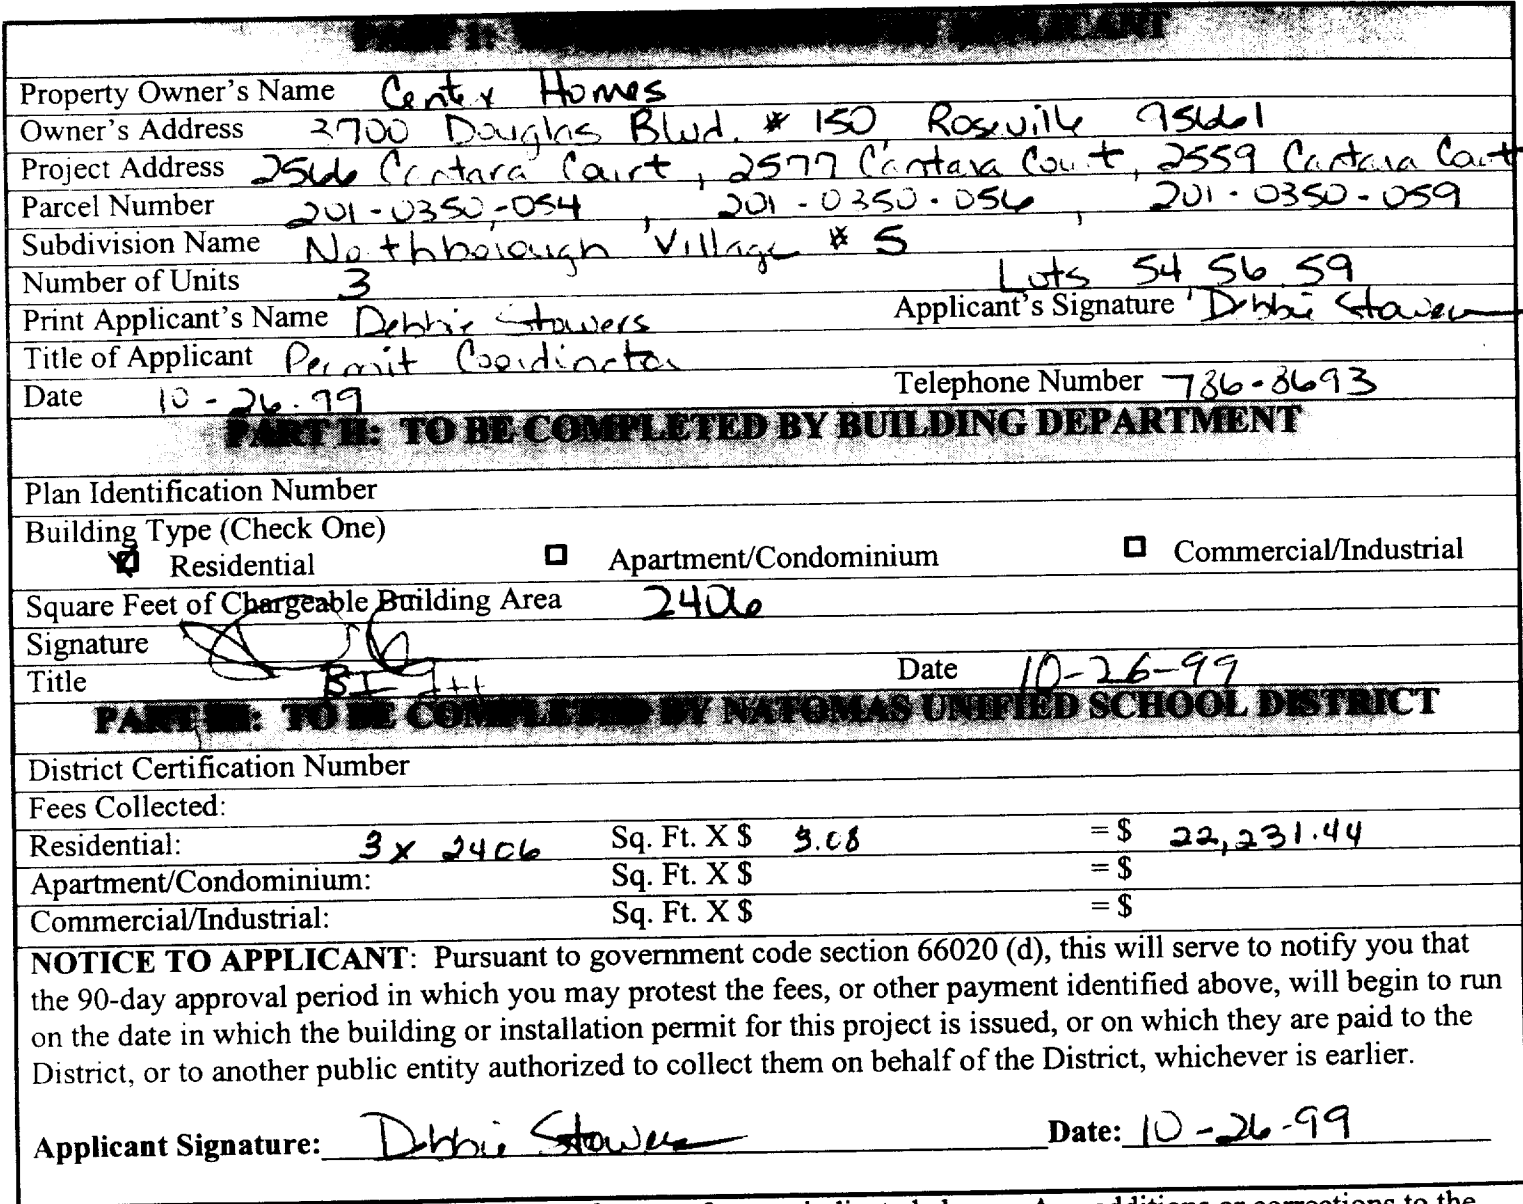 PART I: APPLICANT
Property Owner's Name Centex Homes
Owner's Address 3700 Douglas Blvd. # 150 Roseville 95661
Project Address 2566 Cantara Court, 2577 Cantara Court, 2559 Cantara Court
Parcel Number 201-0350-054, 201-0350-056, 201-0350-059
Subdivision Name Northborough Village # 5
Number of Units 3 Lots 54 56 59
Print Applicant's Name Debbie Stowers Applicant's Signature Debbie Stowers
Title of Applicant Permit Coordinator
Date 10-26-99 Telephone Number 786-8693
PART II: TO BE COMPLETED BY BUILDING DEPARTMENT
Plan Identification Number
Building Type (Check One)
Residential Apartment/Condominium Commercial/Industrial
Square Feet of Chargeable Building Area 2406
Signature
Title Date 10-26-99
PART III: TO BE COMPLETED BY NATOMAS UNIFIED SCHOOL DISTRICT
District Certification Number
Fees Collected:
Residential: 3 x 2406 Sq. Ft. X $ 3.08 = $ 22,231.44
Apartment/Condominium: Sq. Ft. X $ = $
Commercial/Industrial: Sq. Ft. X $ = $
NOTICE TO APPLICANT: Pursuant to government code section 66020 (d), this will serve to notify you that
the 90-day approval period in which you may protest the fees, or other payment identified above, will begin to run
on the date in which the building or installation permit for this project is issued, or on which they are paid to the
District, or to another public entity authorized to collect them on behalf of the District, whichever is earlier.
Applicant Signature: Debbie Stowers Date: 10-26-99
additions or corrections to the